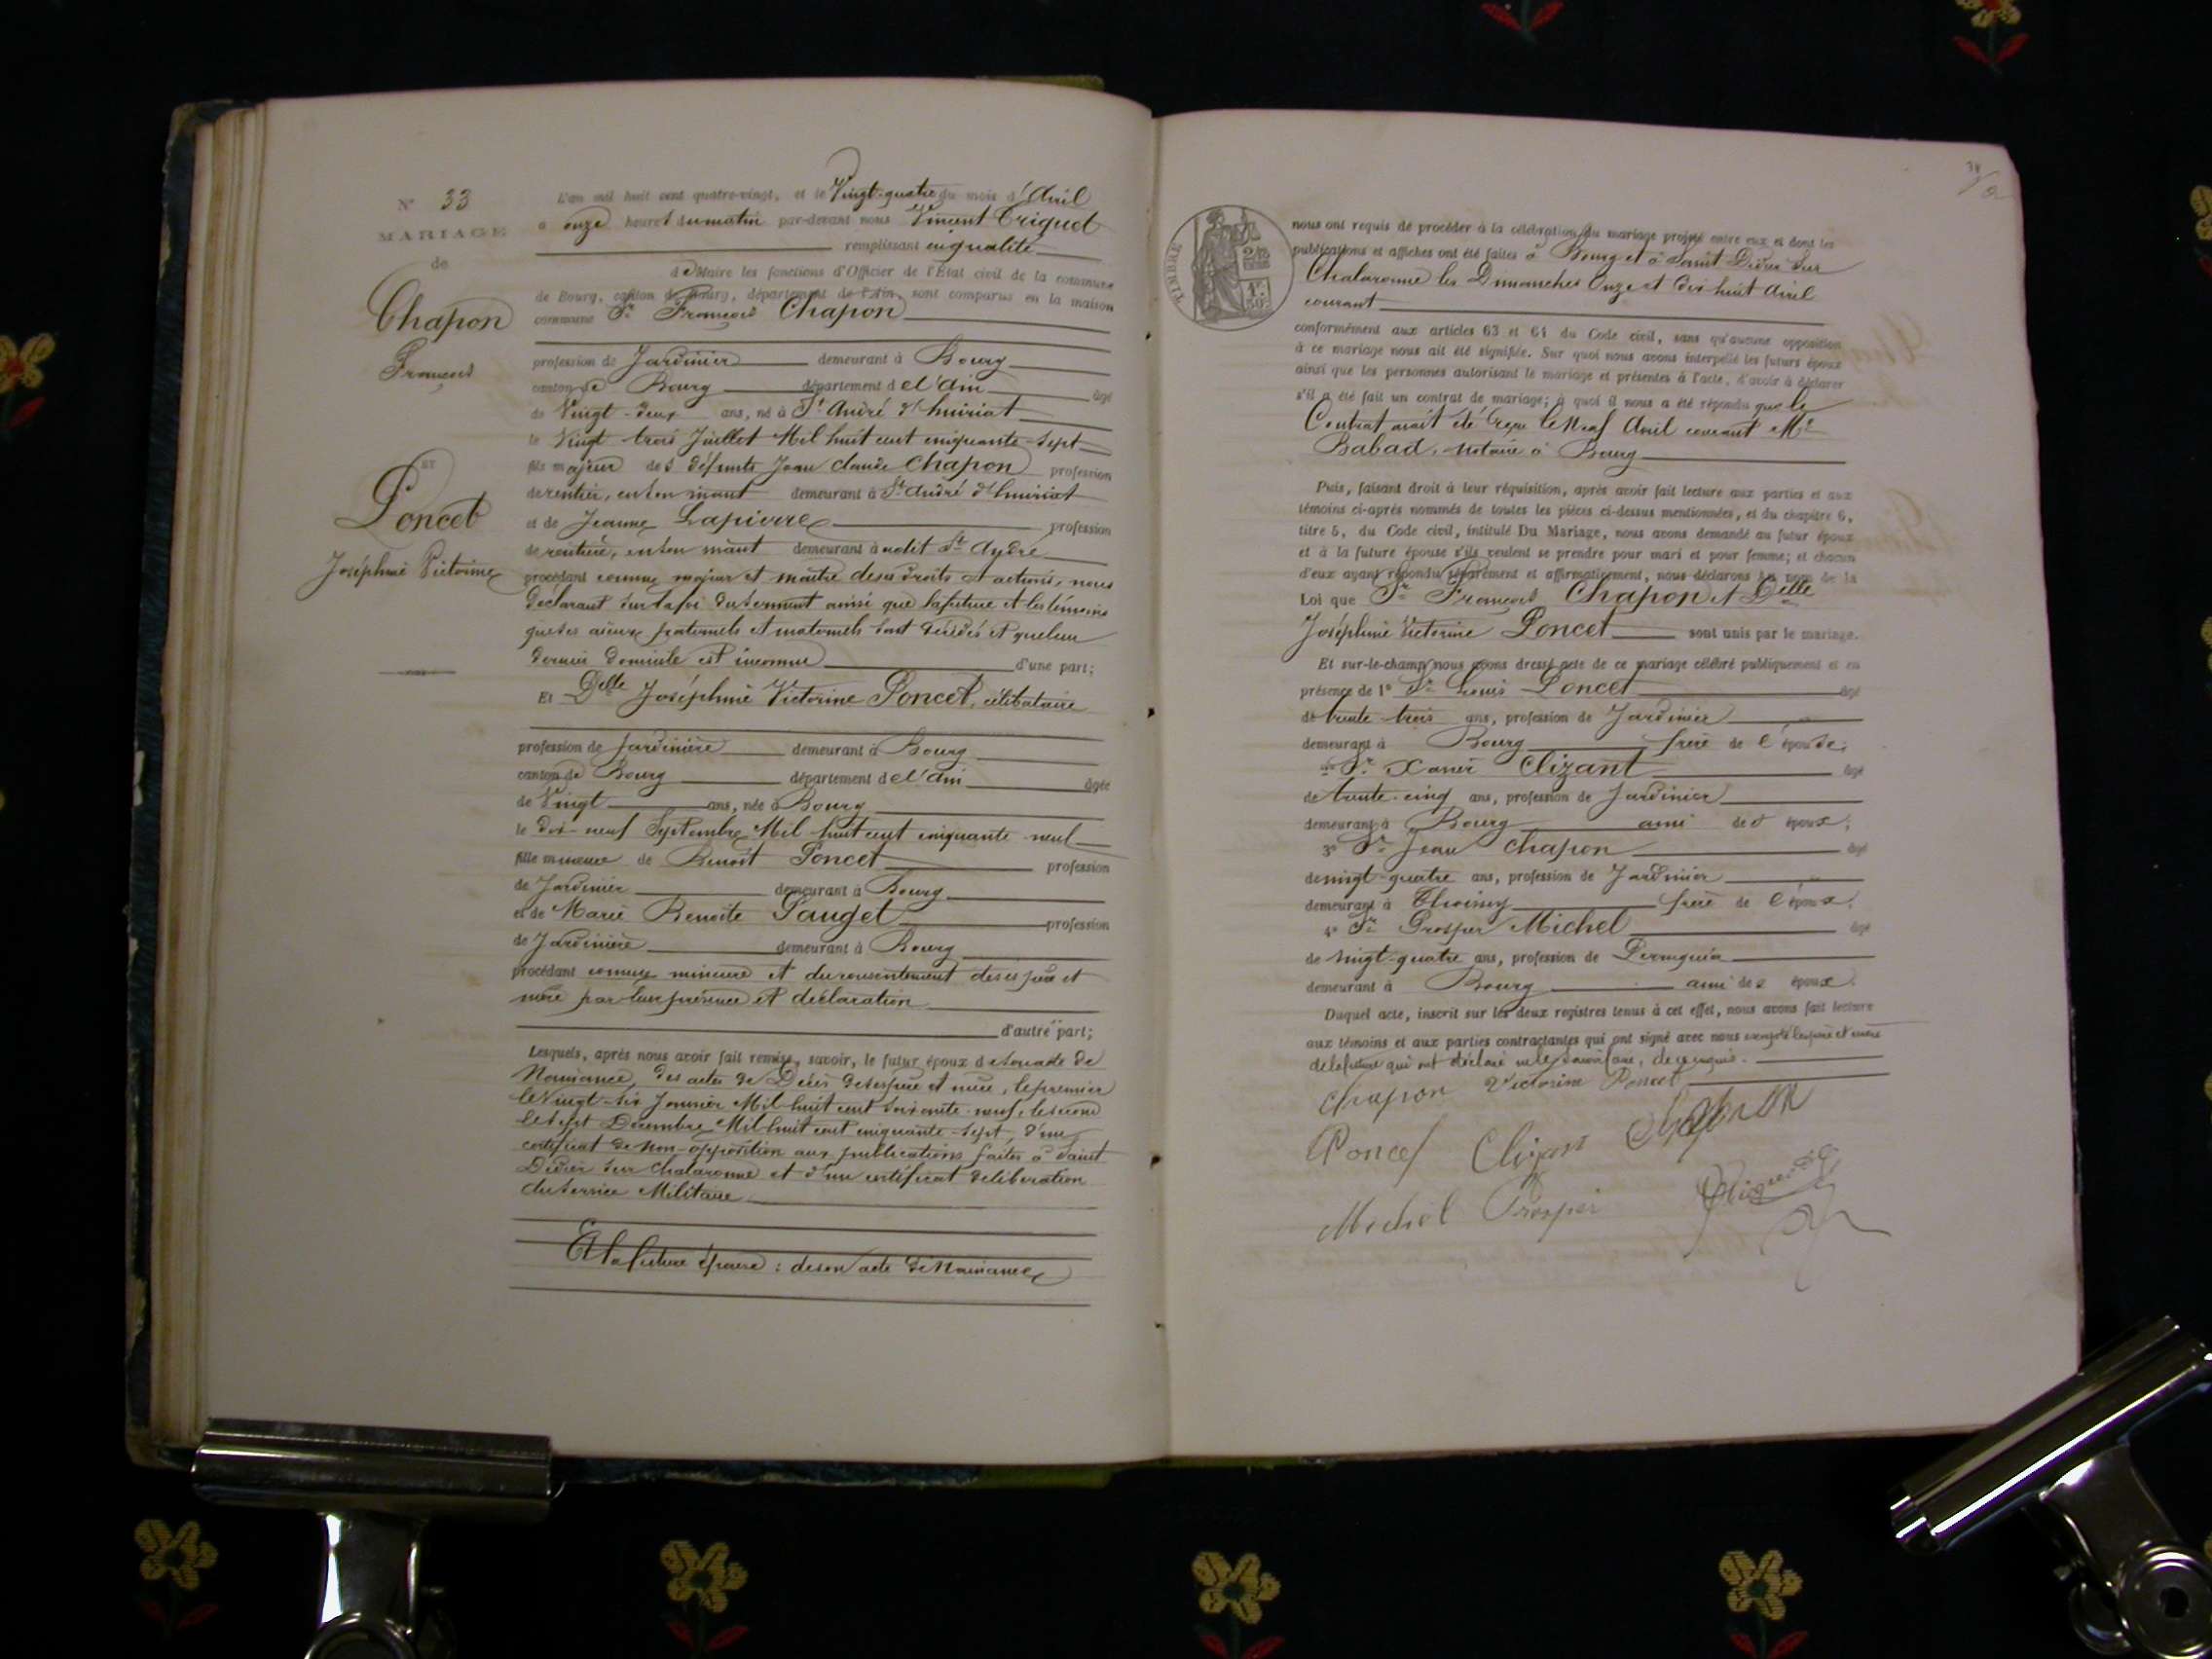 N° 33
MARIAGE
de
Chapon
François
ET
Poncet
Joséphine Victorine
L'an mil huit cent quatre-vingt, et le Vingt-quatre du mois d'Avril
à onze heures du matin par-devant nous Vincent Triquet
remplissant en qualité
de Maire les fonctions d'Officier de l'État civil de la commune
de Bourg, canton de Bourg, département de l'Ain, sont comparus en la maison
commune Sr François Chapon
profession de Jardinier demeurant à Bourg
canton de Bourg département de l'Ain âgé
de Vingt-deux ans, né à St André d'huiriat
le Vingt trois Juillet Mil huit cent cinquante-sept
fils majeur des défunts Jean claude Chapon profession
de rentier, en son vivant demeurant à St André d'huiriat
et de Jeanne Lapierre profession
de rentière, en son vivant demeurant à udit St André
procédant comme majeur et maître de ses droits et actions, nous
déclarant sur la foi du serment ainsi que la future et les témoins
que ses aïeux paternels et maternels sont décédés et que leur
dernier domicile est inconnu d'une part;
Et Delle Joséphine Victorine Poncet, célibataire
profession de Jardinière demeurant à Bourg
canton de Bourg département de l'Ain âgée
de Vingt ans, née à Bourg
le dix-neuf Septembre Mil huit cent cinquante-neuf
fille mineure de Benoit Poncet profession
de Jardinier demeurant à Bourg
et de Marie Benoite Pauget profession
de Jardinière demeurant à Bourg
procédant comme mineure et du consentement de ses père et
mère par leur présence et déclaration
d'autre part;
Lesquels, après nous avoir fait remise, savoir, le futur époux de son acte de
Naissance, des actes de Décès de ses père et mère, le premier
le Vingt-six Janvier Mil huit cent soixante-neuf, le second
le sept Décembre Mil huit cent cinquante-sept, d'un
certificat de non-opposition aux publications faites à Saint
Didier sur Chalaronne et d'un certificat de libération
du service Militaire
Et la future épouse : de son acte de Naissance
TIMBRE
nous ont requis de procéder à la célébration du mariage projeté entre eux et dont les
publications et affiches ont été faites à Bourg et à Saint Didier sur
Chalaronne les Dimanches Onze et dix huit Avril
courant
conformément aux articles 63 et 64 du Code civil, sans qu'aucune opposition
à ce mariage nous ait été signifiée. Sur quoi nous avons interpellé les futurs époux
ainsi que les personnes autorisant le mariage et présentes à l'acte, d'avoir à déclarer
s'il a été fait un contrat de mariage; à quoi il nous a été répondu que le
Contrat avait été reçu le Neuf Avril courant Me
Babad, notaire à Bourg
Puis, faisant droit à leur réquisition, après avoir fait lecture aux parties et aux
témoins ci-après nommés de toutes les pièces ci-dessus mentionnées, et du chapitre 6,
titre 5, du Code civil, intitulé Du Mariage, nous avons demandé au futur époux
et à la future épouse s'ils veulent se prendre pour mari et pour femme; et chacun
d'eux ayant répondu séparément et affirmativement, nous déclarons au nom de la
Loi que Sr François Chapon et Delle
Joséphine Victorine Poncet sont unis par le mariage.
Et sur-le-champ nous avons dressé acte de ce mariage célébré publiquement et en
présence de 1° Sr Louis Poncet âgé
de trente trois ans, profession de Jardinier
demeurant à Bourg frère de l'épouse;
Sr Xavier Clizant âgé
de trente-cinq ans, profession de Jardinier
demeurant à Bourg ami des époux;
3° Sr Jean Chapon âgé
de vingt-quatre ans, profession de Jardinier
demeurant à Thoissey frère de l'époux;
4° Sr Prosper Michel âgé
de vingt-quatre ans, profession de Perruquier
demeurant à Bourg ami des époux.
Duquel acte, inscrit sur les deux registres tenus à cet effet, nous avons fait lecture
aux témoins et aux parties contractantes qui ont signé avec nous excepté les père et mère
de la future qui ont déclaré ne le savoir faire, de ce requis.
Chapon Victorine Poncet
Poncet Clizant Chapon
Michel Prosper